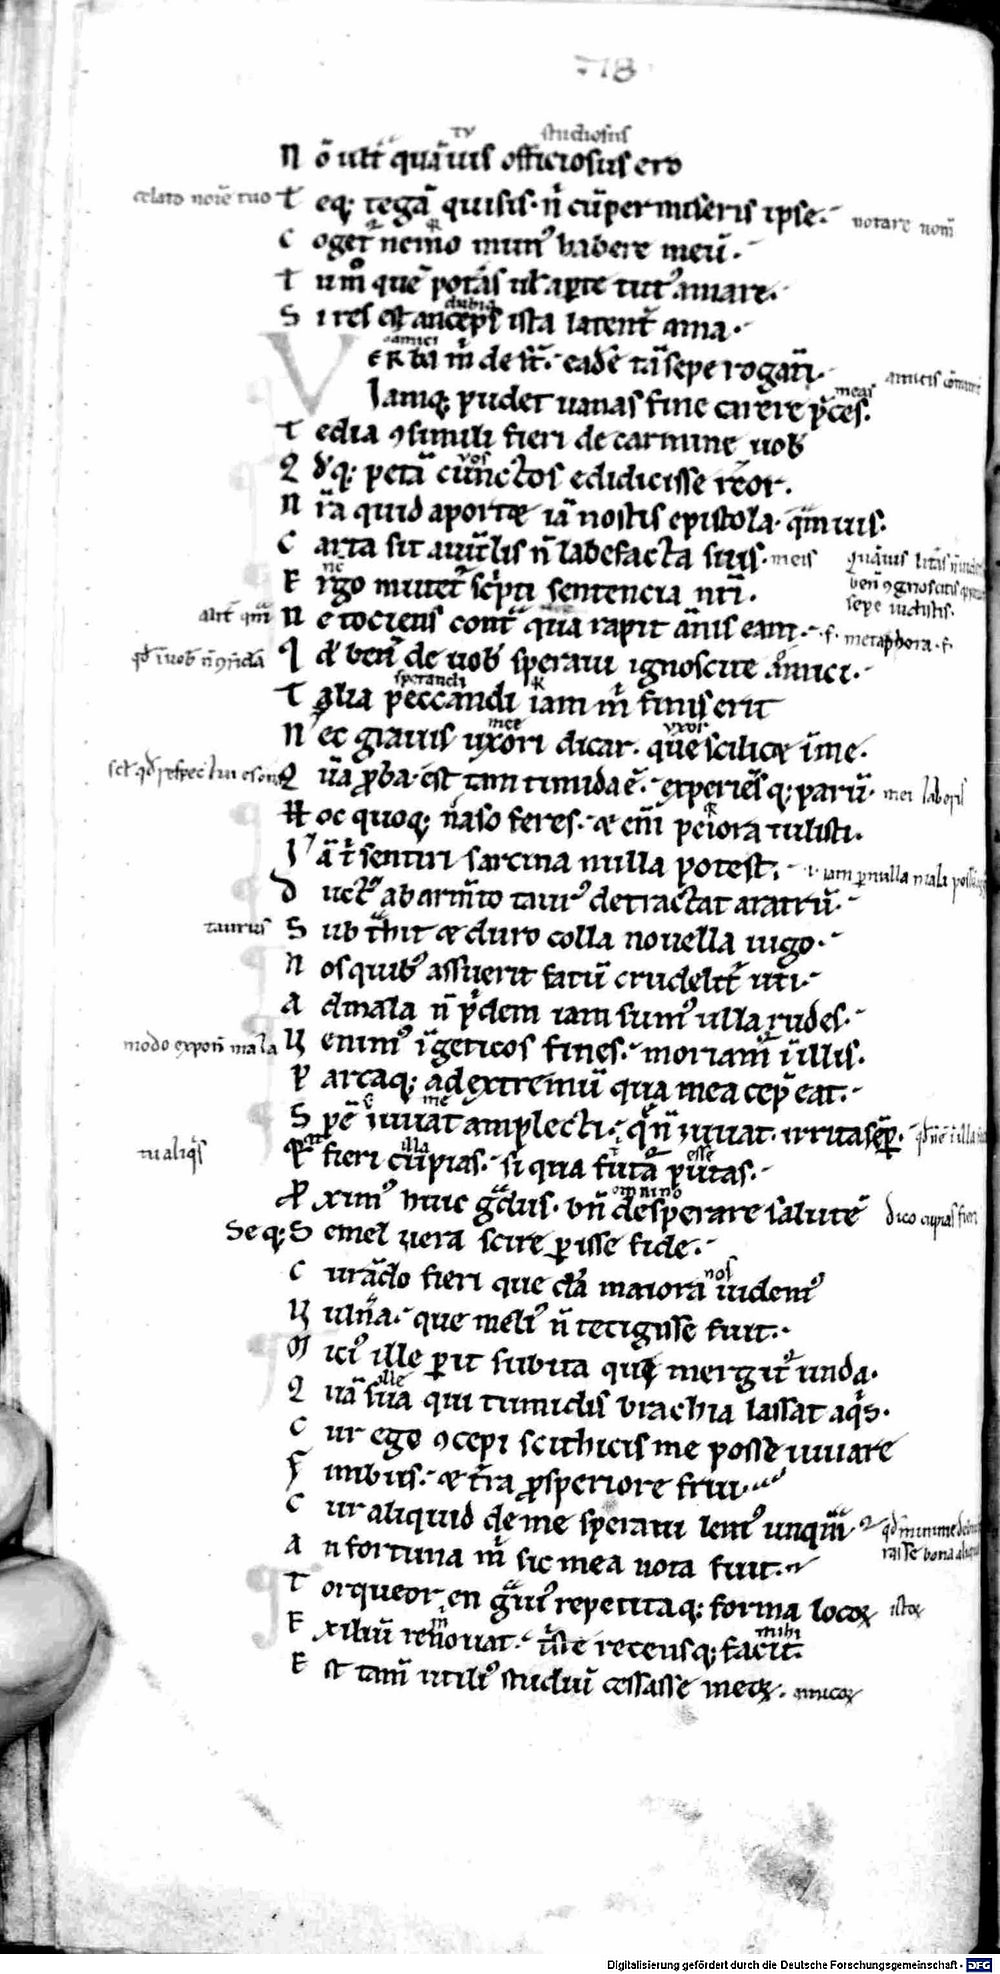 78
tu studiosus
N ō ult᷑ quāuis officiosus ero
celato noīe tuo T eq; tegā quisis· n̄ cūpermiseris ipse· notare nom̄
C oget᷑ nemo mun᷒ habere meū·
T um̄ que potas uł aꝑte tut᷒ amare·
dubia
S i res est anceps ista latent᷑ ama·
amici
V ERba m̄ dest̄· eadē tā sepe roganti· amicis
meas
Iamq; pudet uanas fine carere p̄ces·
T edia ꝯsimili fieri de carmine uob
vos
Q d'q; petā cunctos edidicisse reor·
N r̄a quid aportæ iā nostis epistola· qm̄uis·
C arta sit auinclis n̄ labefacta suis· meis quāuis
E rgo mutet᷑ sc̄pti sentencia nr̄i· ben̄ ꝯgnoscitis
sepe uidistis·
N e tociens cont̄ quā rapit ānis eam· ·s· metaphora·s·
Q d' ben̄ de uob speraui ignoscite amici·
sperandi
T alia peccandi iam m̄ finis erit
mee uxor
N ec grauis uxori dicar· que scilicæ ī me·
Q uā ꝓba est tam timida ē· experiēs q; parū· mei laboris
H oc quoq; naso feres· æ eni peiora tulisti·
I ā t̄ sentiri sarcina nulla potest· ·i· iam ꝑ nulla mala
D uct᷒ ab arm̄to taur᷒ detractat aratrū·
taurus S ubt̄hit æ duro colla nouella iugo·
N os quib᷒ assuerit fatū crudelit᷑ uti·
A d mala n̄ p̄dem iam sum᷒ ulla rudes·
modo expon̄ mala U enim᷒ ī geticos fines· moriam᷑ ī illis·
P arcaq; ad extremū qua mea cep̄ eat·
me
S pē iuuat amplecti· q̄ n̄ iuuat irrita sēꝑ·
illa esse
tu aliq̄s fieri cupias· si qua futā putas·
omnino
P roxim᷒ huic gradus· bn̄ desperare salutē dico cupias fieri
Seq; S emel uera scire ꝑisse fide·
nos
C urādo fieri que dā maiora uidem᷒
U uln̄a· que meli᷒ n̄ tetigisse fuit·
M ici᷒ ille ꝑit subita qui mergit᷑ unda·
ille
Q uā sua qui tumidis brachia lassat aq̄s·
C ur ego ꝯcepi scithicis me posse iuuare
F inibus· æ t̄ra ꝓsperiore frui·
C ur aliquid de me speraui leni᷒ unqm̄ qd' minime
A n fortuna m̄ sic mea nota fuit·
T orqueor en gui᷒ repetitaq; forma locoꝝ istoꝝ
mihi
E xiliū renouat· tste recensq; facit·
E st tam̄ utili᷒ studiū cessasse meoꝝ· amicoꝝ
Digitalisierung gefördert durch die Deutsche Forschungsgemeinschaft - DFG